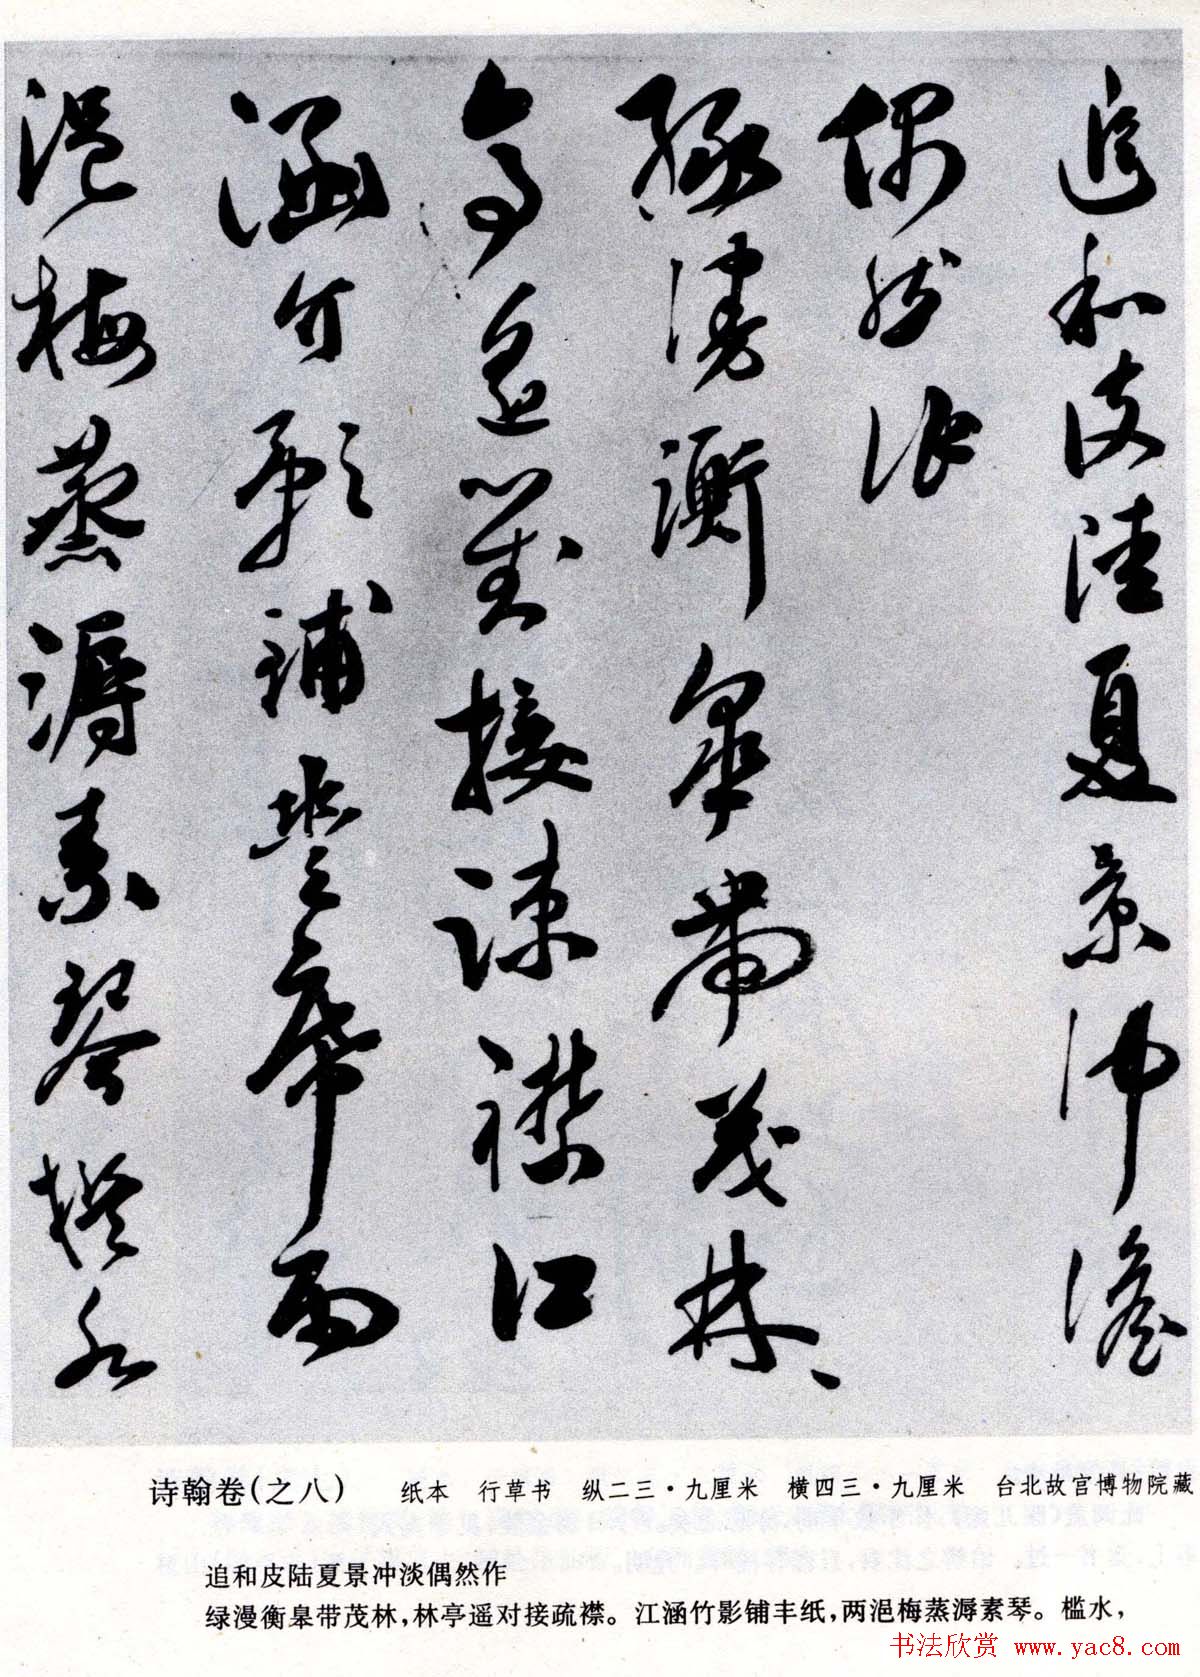 追和皮陸夏景沖澹
偶然作
綠漫衡皋帶茂林、
亭遥對接疎襟江
涵竹影鋪豐席雨
浥梅蒸溽素琴檻水
诗翰卷(之八) 纸本 行草书 纵二三·九厘米 横四三·九厘米 台北故宫博物院藏
追和皮陆夏景冲淡偶然作
绿漫衡皋带茂林,林亭遥对接疏襟。江涵竹影铺丰纸,两浥梅蒸溽素琴。槛水,
书法欣赏 www.yac8.com